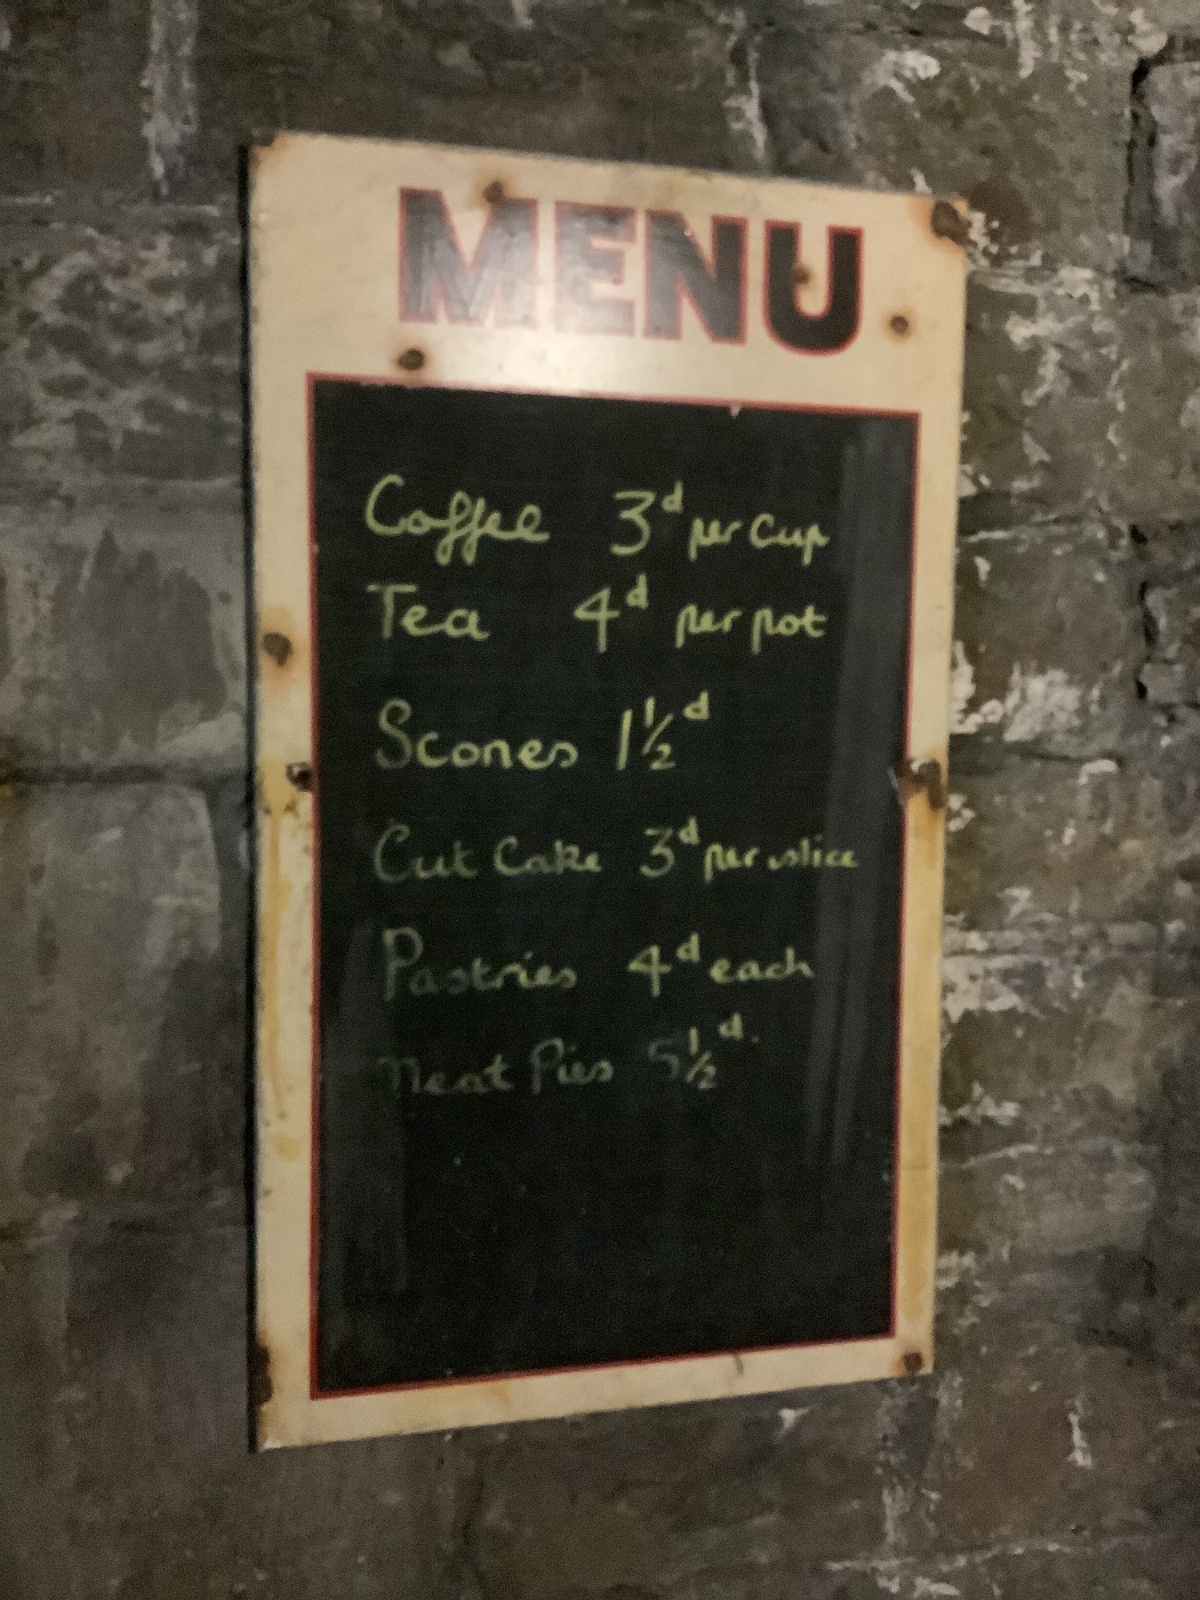 MENU
Coffee 3d per Cup
Tea 4d per pot
Scones 1 1/2 d
Cut Cake 3d per slice
Pastries 4d each
Meat Pies 5 1/2 d.